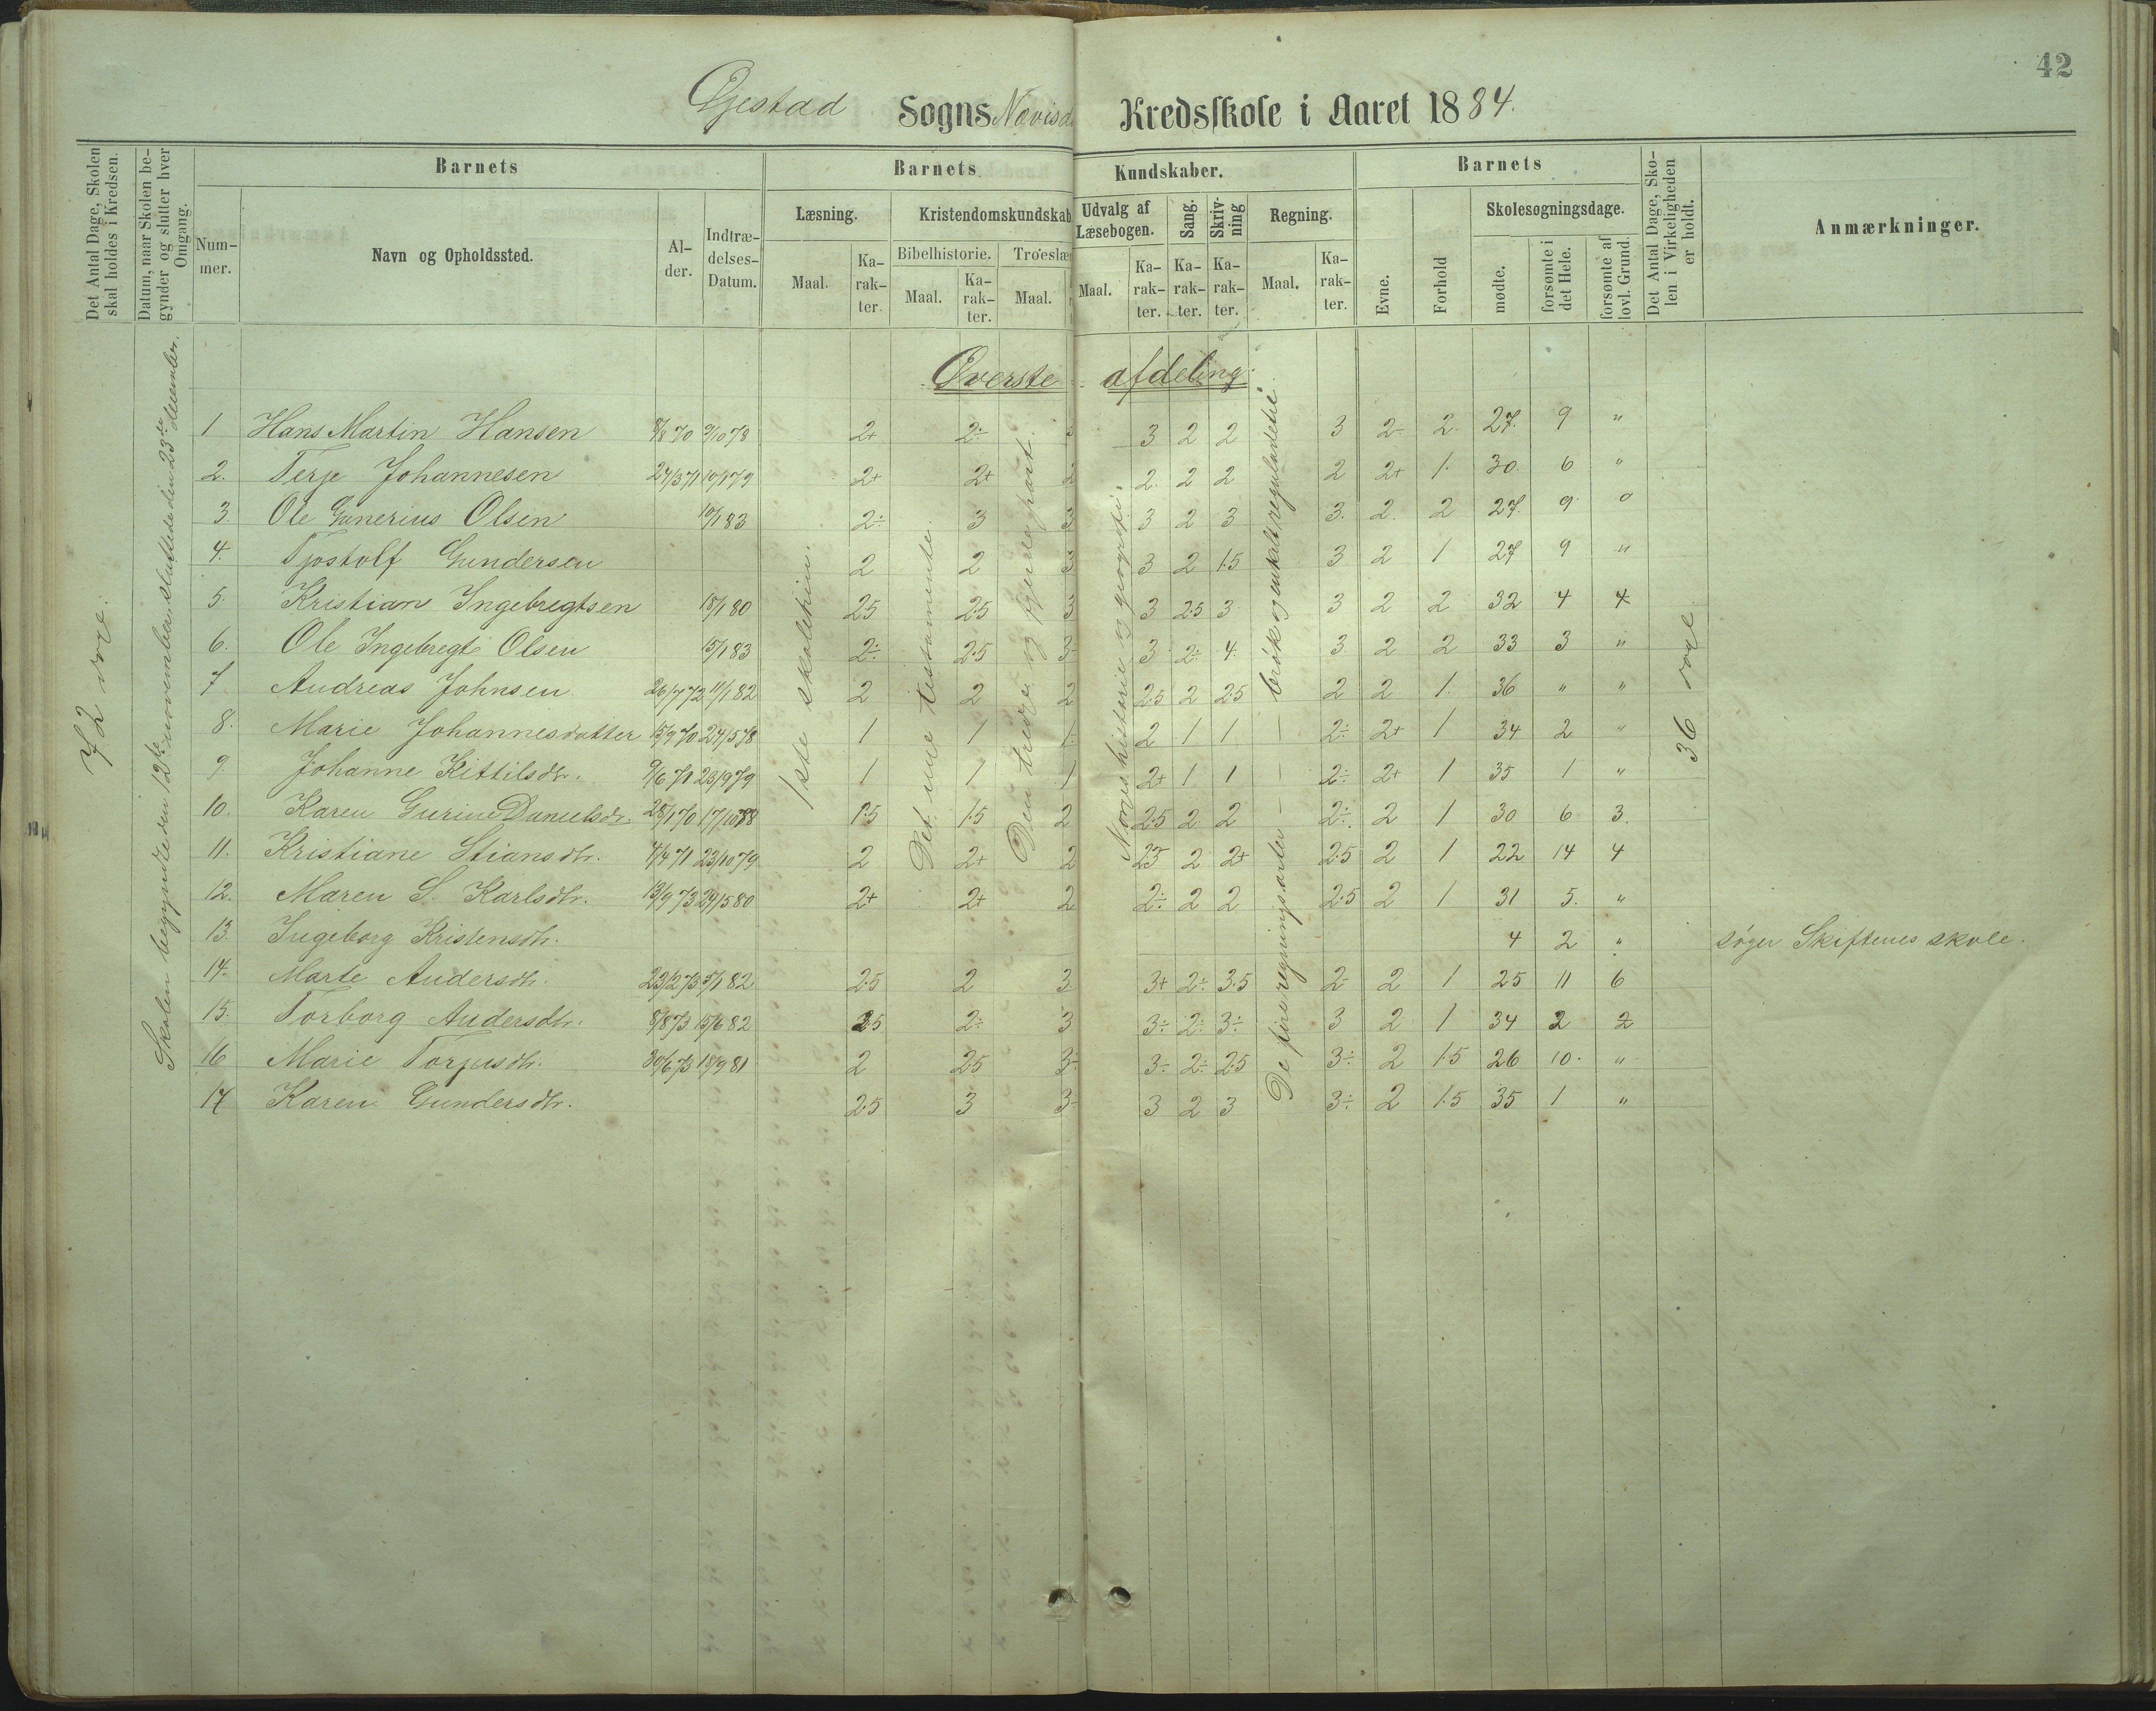 42
Øjestad Sogns Kredsskole i Aaret 1884.
Det Antal Dage, Skolen skal holdes i Kredsen.
Datum, naar Skolen begynder og slutter hver Omgang.
Barnets
Nummer.
Navn og Opholdssted.
Alder.
Indtrædelses-Datum.
Barnets Kundskaber.
Læsning.
Maal.
Karakter.
Kristendomskundskab
Bibelhistorie.
Maal.
Karakter.
Maal.
Udvalg af Læsebogen.
Maal.
Karakter.
Sang.
Karakter.
Skrivning
Karakter.
Regning.
Maal.
Karakter.
Barnets
Evne.
Forhold
Skolesøgningsdage.
mødte.
forsømte i det Hele.
forsømte af lovl. Grund.
Det Antal Dage, Skolen i Virkeligheden er holdt.
Anmærkninger.
72
Skolen begyndte den 12te november, sluttede den 23de december.
Øverste afdeling.
Det nye testamente.
Den tredie og fjerde part.
Norges historie og geografi.
De fire regningsarter
36
1 Hans Martin Hansen 8/8 70 9/10 78 2+ 2÷ 3 2 2 3 2÷ 2 27 9 "
2. Terje Johannesen 24/3 71 10/1 79 2+ 2+ 2 2 2 2 2 2+ 1. 30. 6 "
3. Ole Gunerius Olsen 10/1 83 2÷ 3 3 3 2 3 3. 2. 2 27. 9 "
4. Tjostolf Gundersen 2 2 3 3 2 1.5 3 2 1 27 9 "
5. Kristian Ingebregtsen 18/1 80 2.5 2.5 3 3 2.5 3 3 2 2 32 4 4
6. Ole Ingebregt Olsen 15/1 83 2÷ 2.5 3 3 2÷ 4. 3 2 2 33 3 "
7 Andreas Johnsen 26/7 72 11/1 82 2 2 2 2.5 2 2.5 2 2 1. 36 " "
8. Marie Johannesdatter 15/9 70 24/5 78 1 1 1 2 1 1 2÷ 2+ 1 34 2 "
9. Johanne Kittilsdtr. 9/6 71 23/9 79 1 1 1 2+ 1 1 2÷ 2+ 1 35 1 "
10. Karen Gurine Danielsdr. 28/1 70 1.5 1.5 2 2.5 2 2 2÷ 2 1 30 6 3.
11. Kristiane Stiansdtr. 4/4 71 23/10 79 2 2+ 2 2.5 2 2+ 2.5 2 1 22 14 4
12. Maren S. Karlsdtr. 13/9 73 29/5 80 2+ 2+ 2 2÷ 2 2 2.5 2 1 31 5. "
13. Ingeborg Kristensdtr. 4 2 " søger Skiftenes skole.
14. Marte Andersdtr. 23/2 73 5/1 82 2.5 2 3 3+ 2÷ 3.5 2÷ 2 1 25 11 6
15. Torborg Andersdtr. 8/8 73 15/6 82 2.5 2÷ 3 3÷ 2÷ 3÷ 3 2 1 34 2 2
16 Marie Torjusdtr. 30/6 73 19/9 81 2 2.5 3÷ 3÷ 2÷ 2.5 3÷ 2 1.5 26 10. "
17 Karen Gundersdtr. 2.5 3 3÷ 3 2 3 3÷ 2 1.5 35 1 "